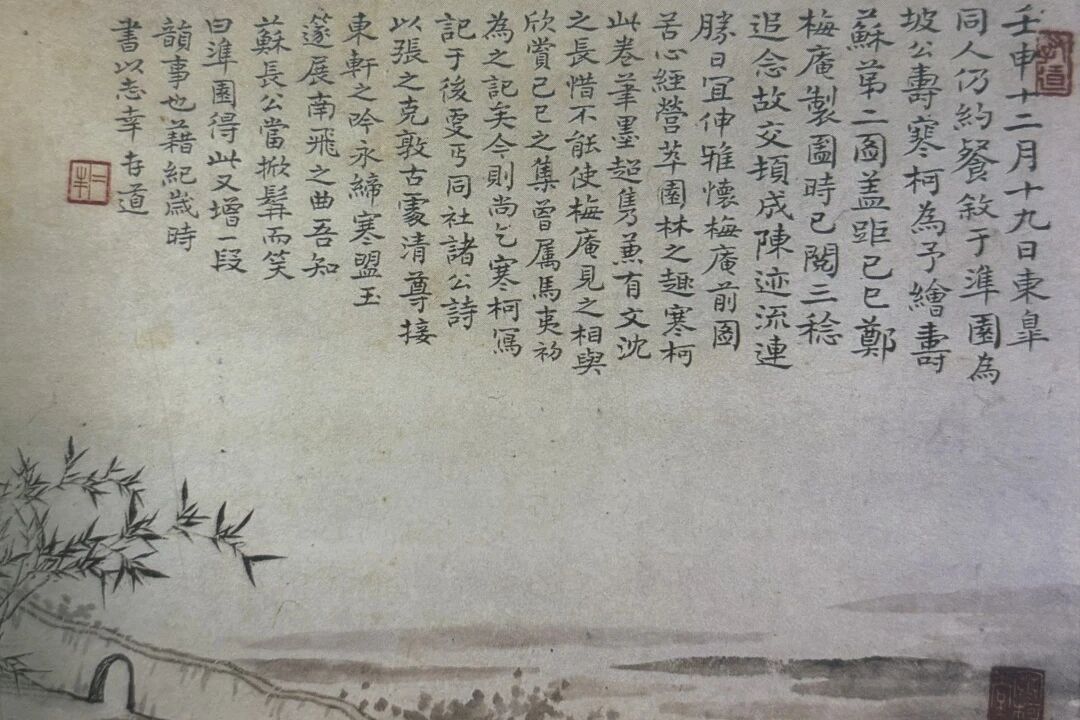 壬申十二月十九日東皐
同人仍約餐敘于準園為
坡公壽寒柯為予繪壽
蘇第二圖盖距己巳鄭
梅庵製圖時已閱三稔
追念故交頓成陳迹流連
勝日冝伸雅懷梅庵前圖
苦心經營萃園林之趣寒柯
此卷筆墨超雋兼有文沈
之長惜不能使梅庵見之相與
欣賞己巳之集曾属馬夷初
為之記矣今則尚乞寒柯寫
記于後更丐同社諸公詩
以張之克敦古懽清尊接
東軒之吟永締寒盟玉
篴展南飛之曲吾知
蘇長公當掀髯而笑
曰準園得此又增一段
韻事也藉紀歲時
書以志幸存道